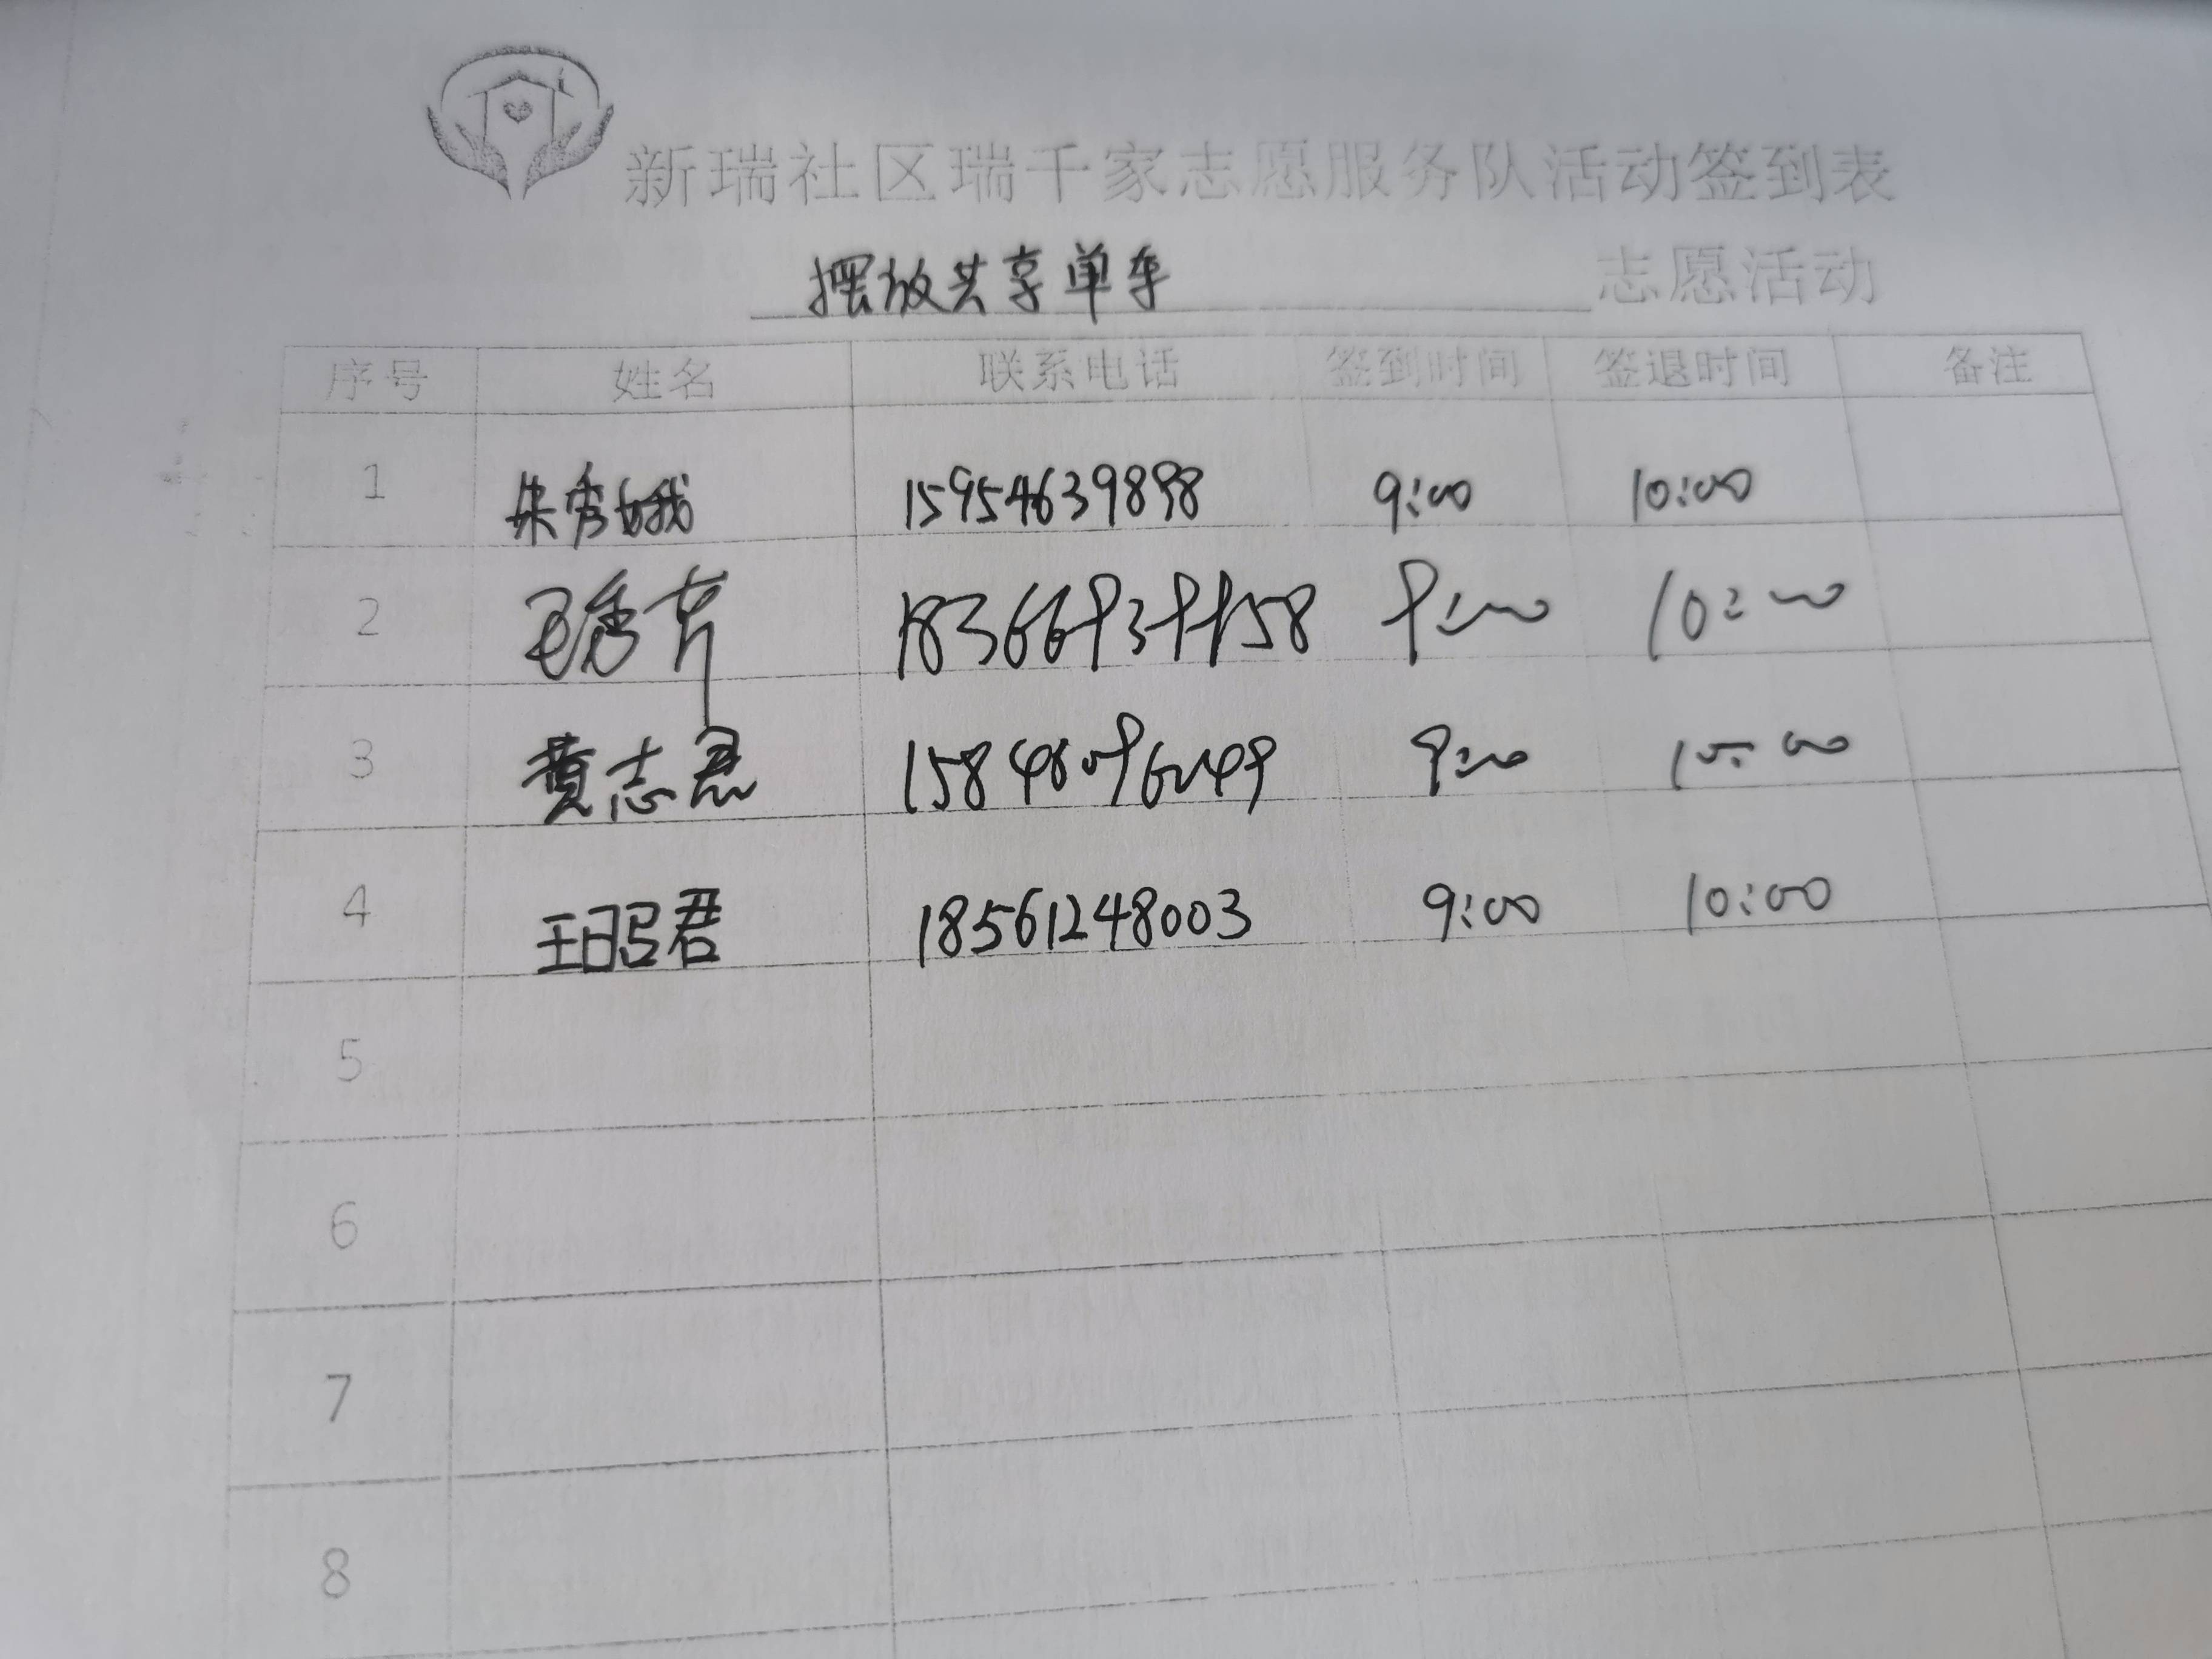 新瑞社区瑞千家志愿服务队活动签到表
摆放共享单车 志愿活动
序号 姓名 联系电话 签到时间 签退时间 备注
1 朱秀娥 15954639898 9:00 10:00
2 秀芹 9:00 10:00
3 黄志君 9:00 10:00
4 王昭君 18561248003 9:00 10:00
5
6
7
8